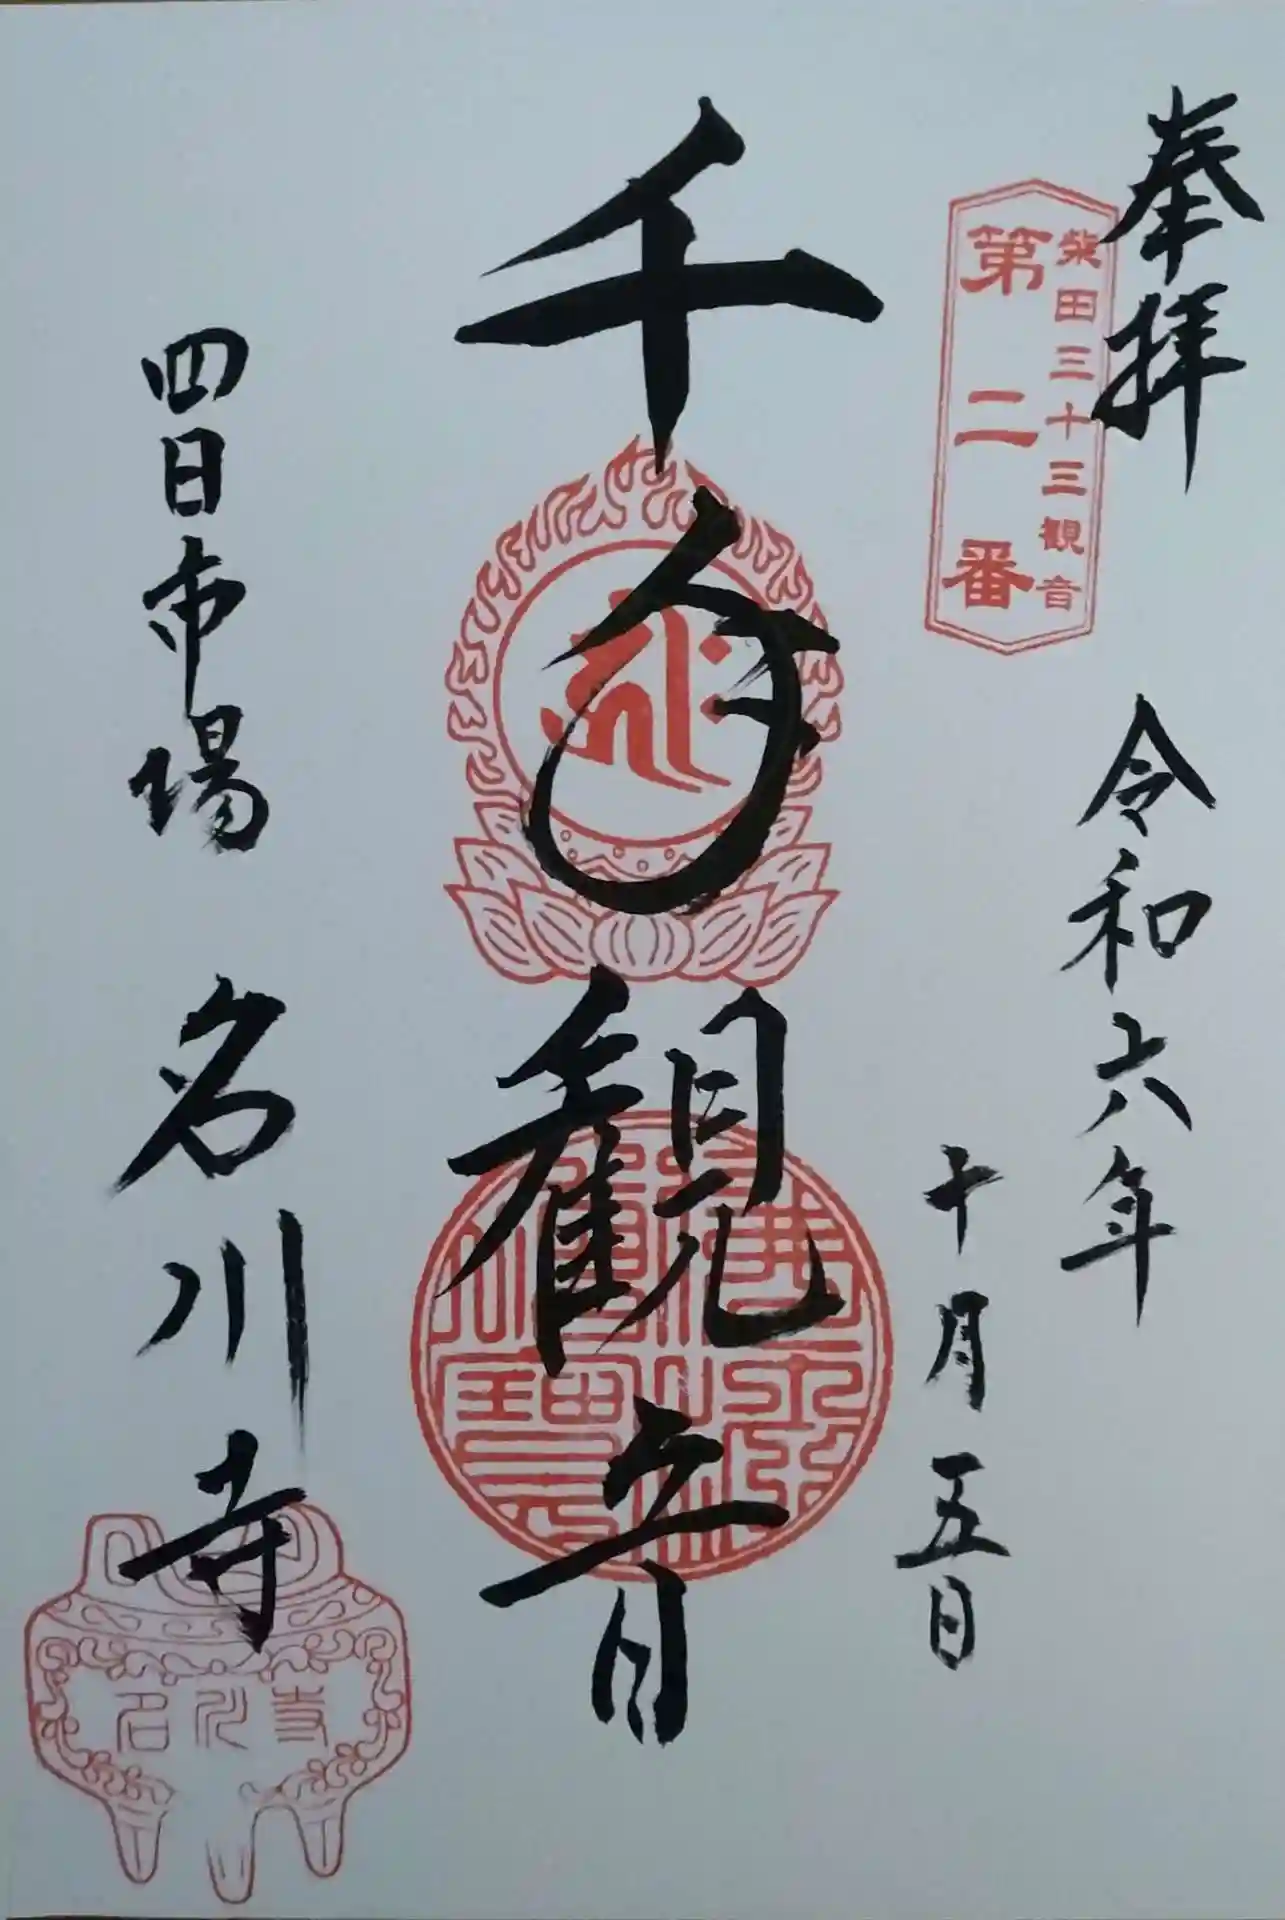 奉拝
柴田三十三観音
第二番
令和六年
十月五日
千手観音
四日市場
名川寺
名川寺